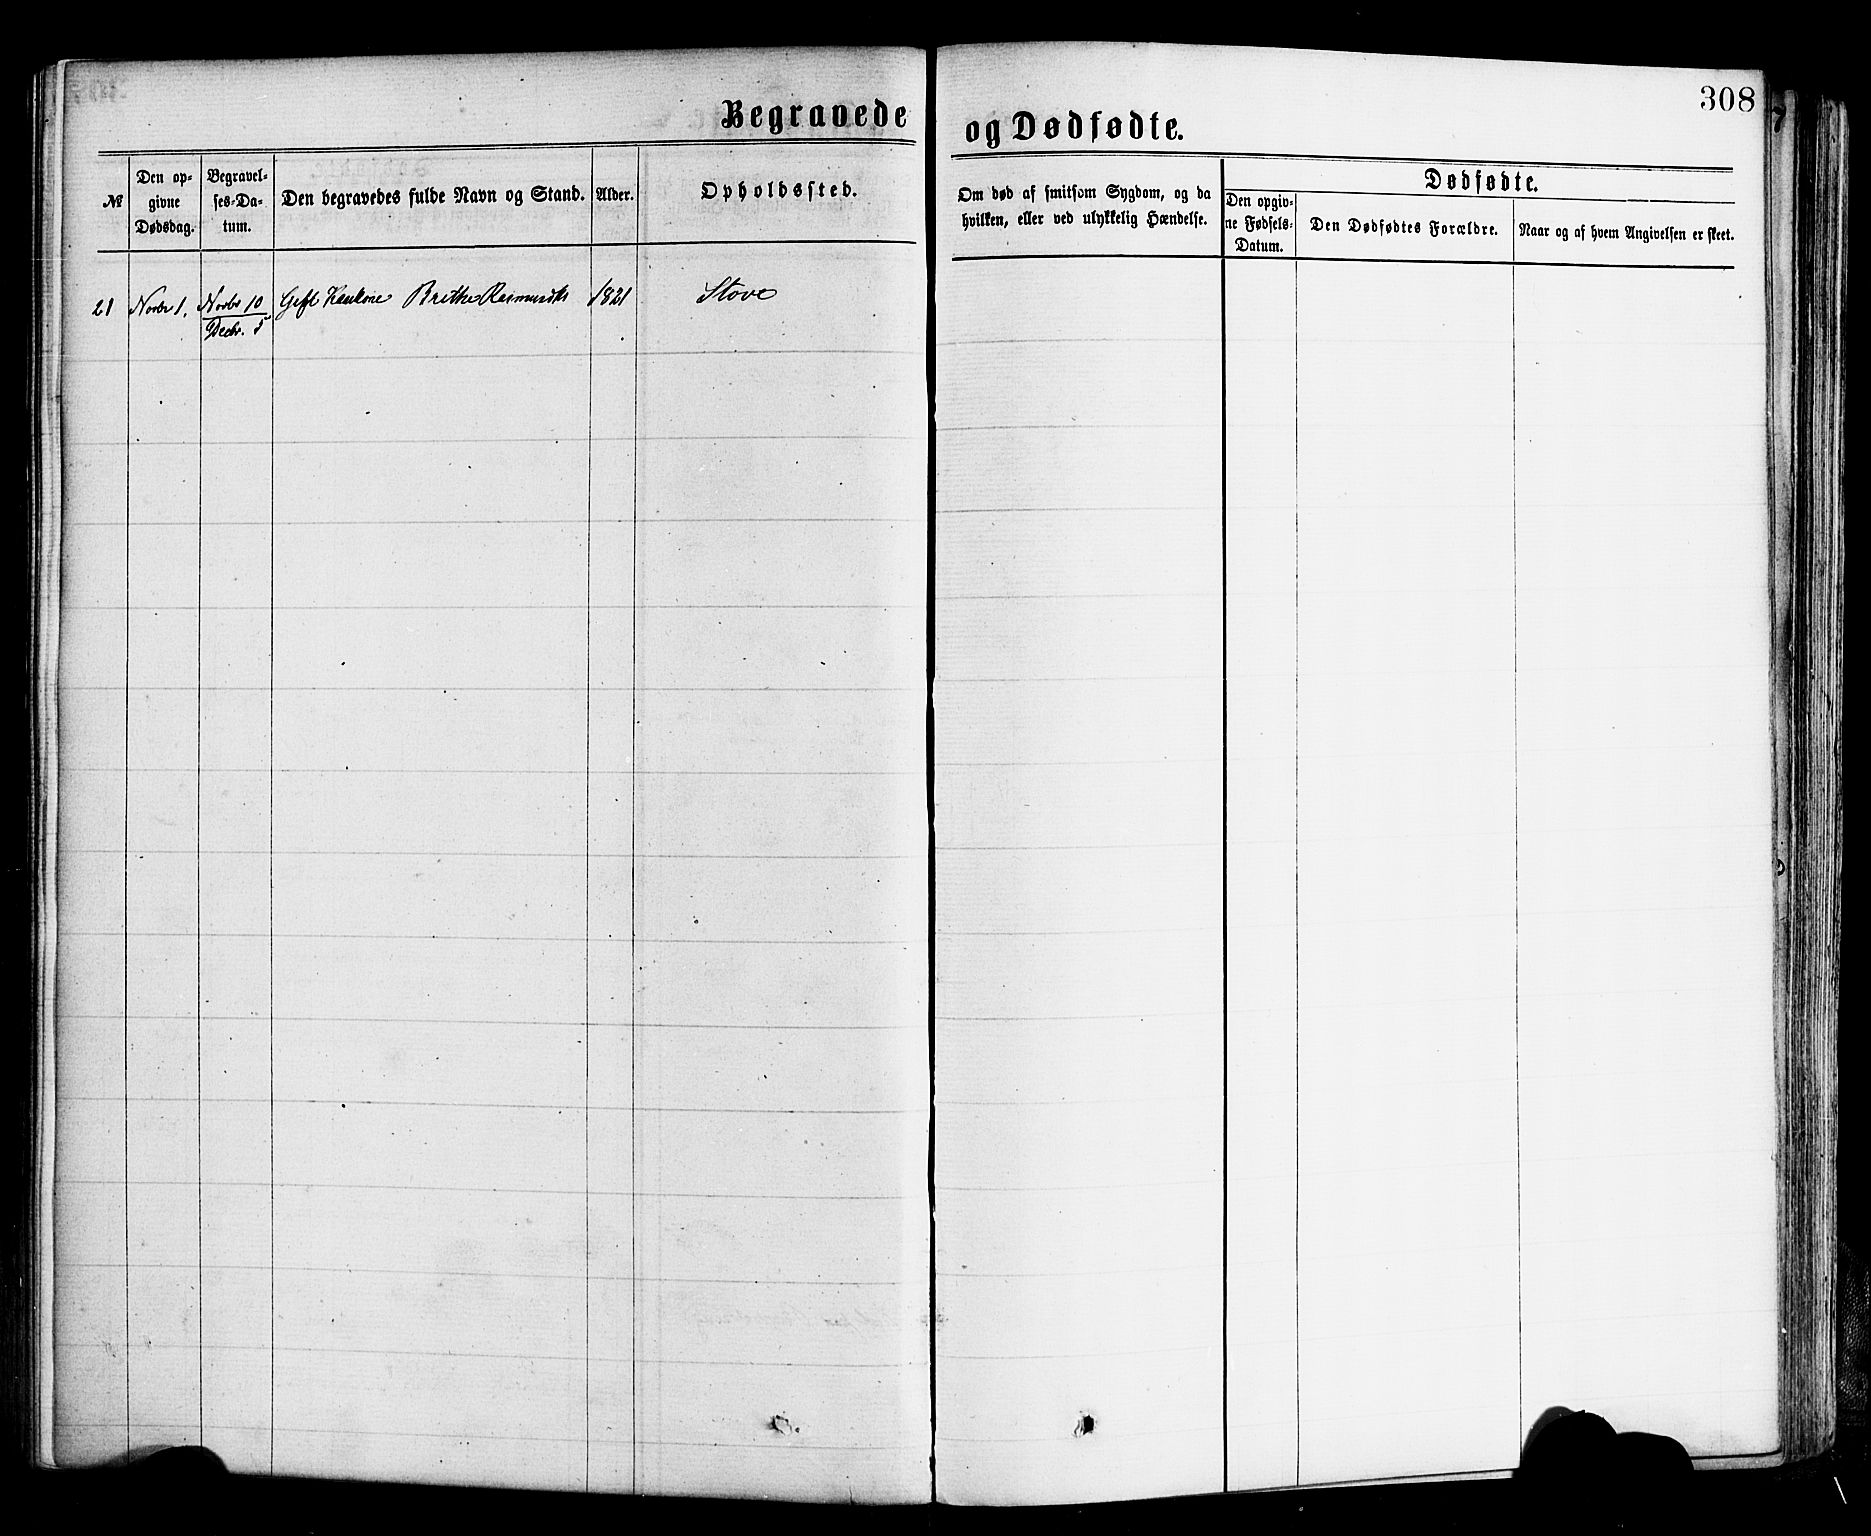 308
Begravede og Dødfødte.
№
Den op-
givne
Dødsdag.
Begravel-
ses-Da-
tum.
Den begravedes fulde Navn og Stand.
Alder.
Opholdssted.
Om død af smitsom Sygdom, og da
hvilken, eller ved ulykkelig Hændelse.
Dødfødte.
Den opgiv-
ne Fødsels-
Datum.
Den Dødfødtes Forældre.
Naar og af hvem Angivelsen er skeet.
21 Novbr 1. Novbr 10 Gift Brithe Rasmusdtr 1821 Stove
Decbr. 5